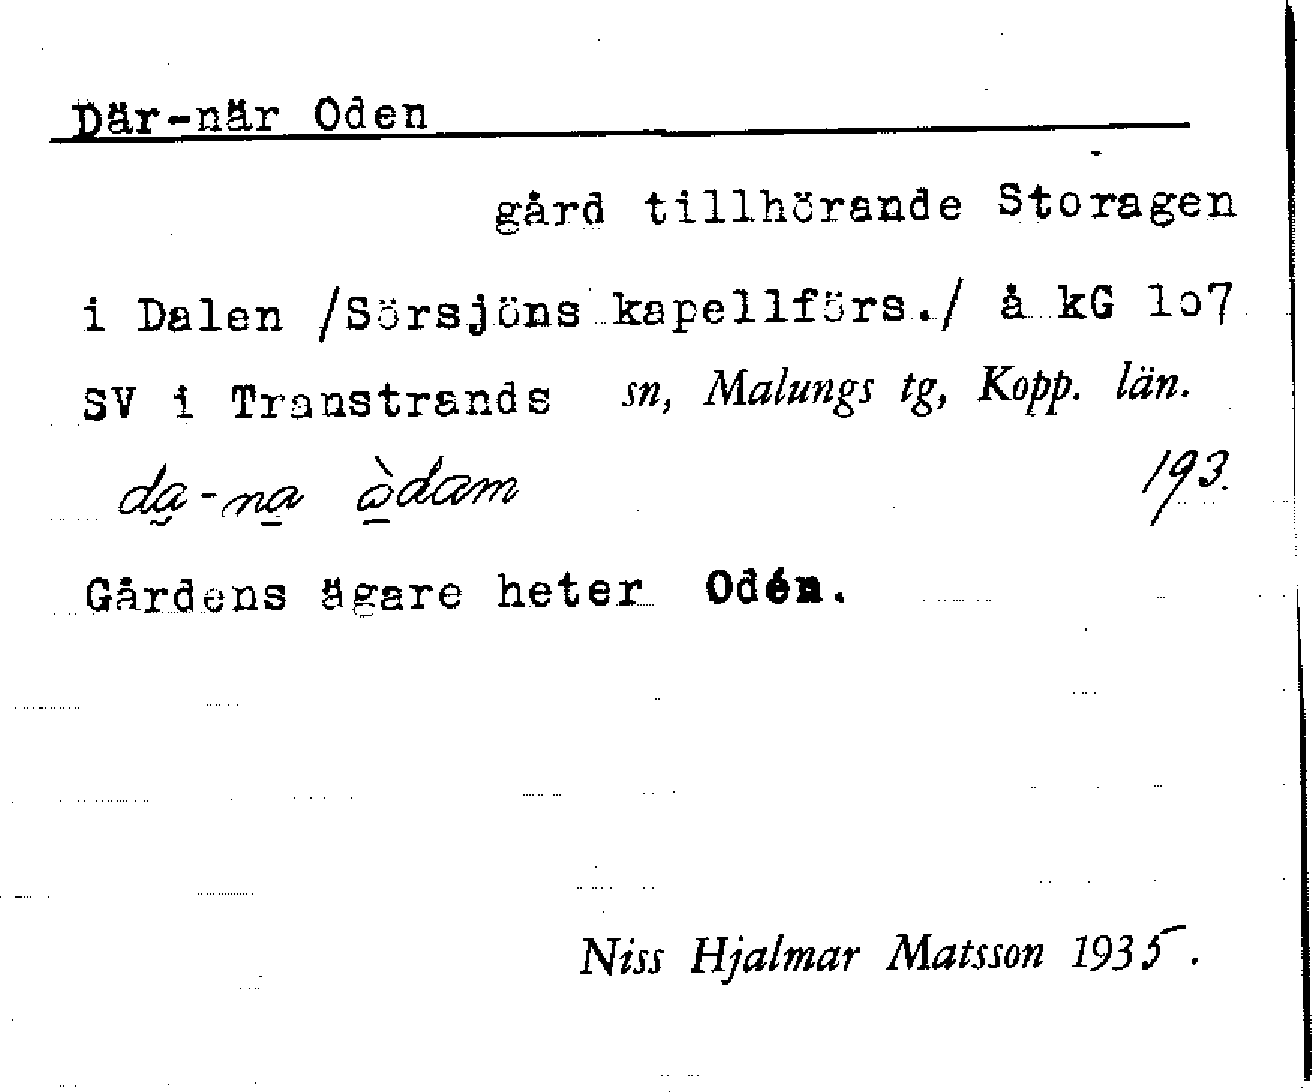 Där-när Oden
gård tillhörande Storagen
i Dalen /Sörsjöns kapellförs./ å kG 1o7
SV i Transtrands sn, Malungs tg, Kopp. län.
da̮-na̱ ò̱dam 193.
Gårdens ägare heter Odén.
Niss Hjalmar Matsson 1935.